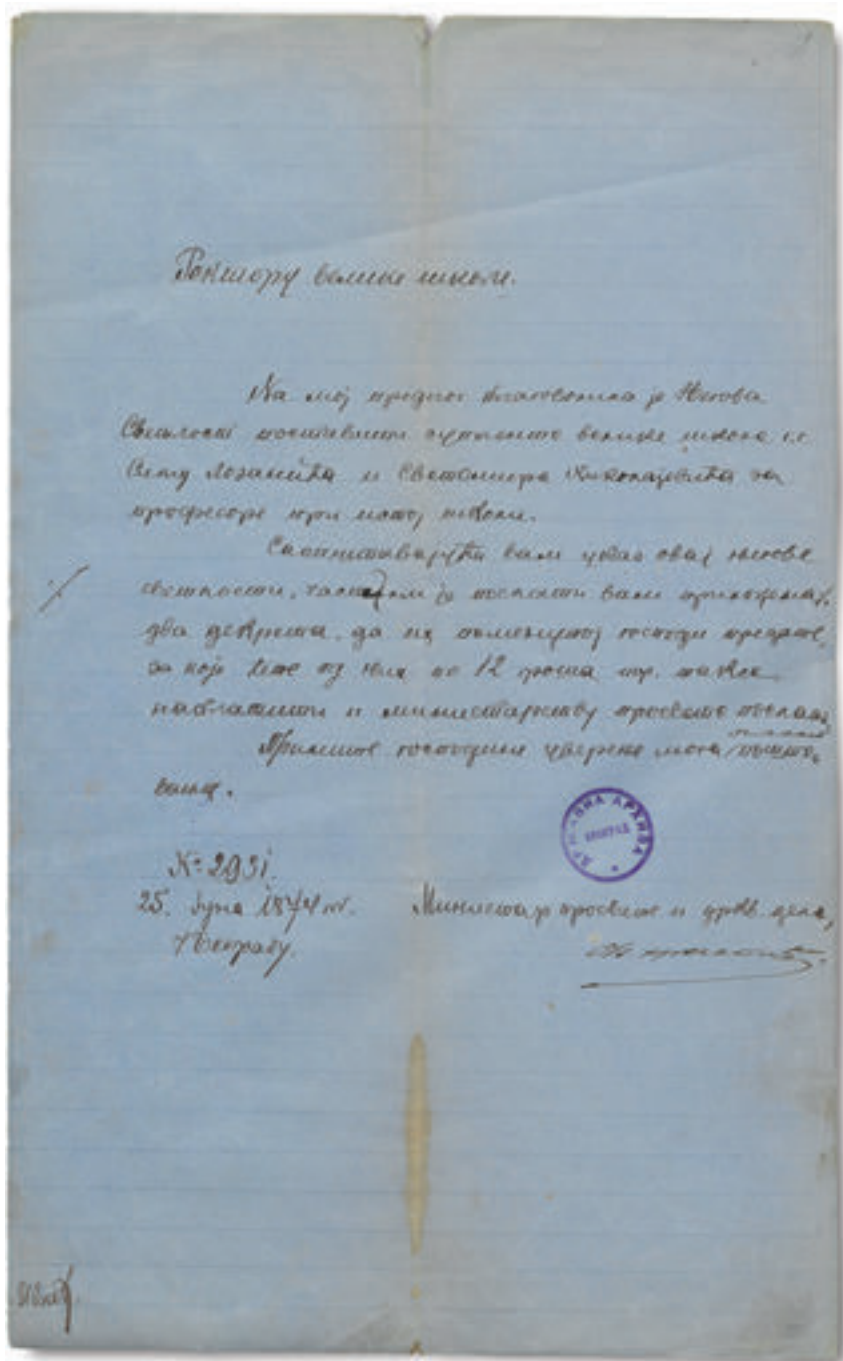 Ректору велике школе.
На мој предлог благоволила је Његова
Светлост поставити суплente велике школе г.г.
Симу Лозанића и Светомира Николајевића за
професоре при истој школи.
Саопштавајући вам указ овај његове
светлости, част ми је послати вам приложена
два декрета, да их поменутој господи предате,
за које ћете од њих по 12 гроша пор. таксе
наплатити и министарству просвете послати
Примите господине уверење мога пошто-
вања.
№ 2931
25. Јуна 1874 год.
у Београду.
Министар просвете и цркв. дела,
ДРЖАВНА АРХИВА
БЕОГРАД